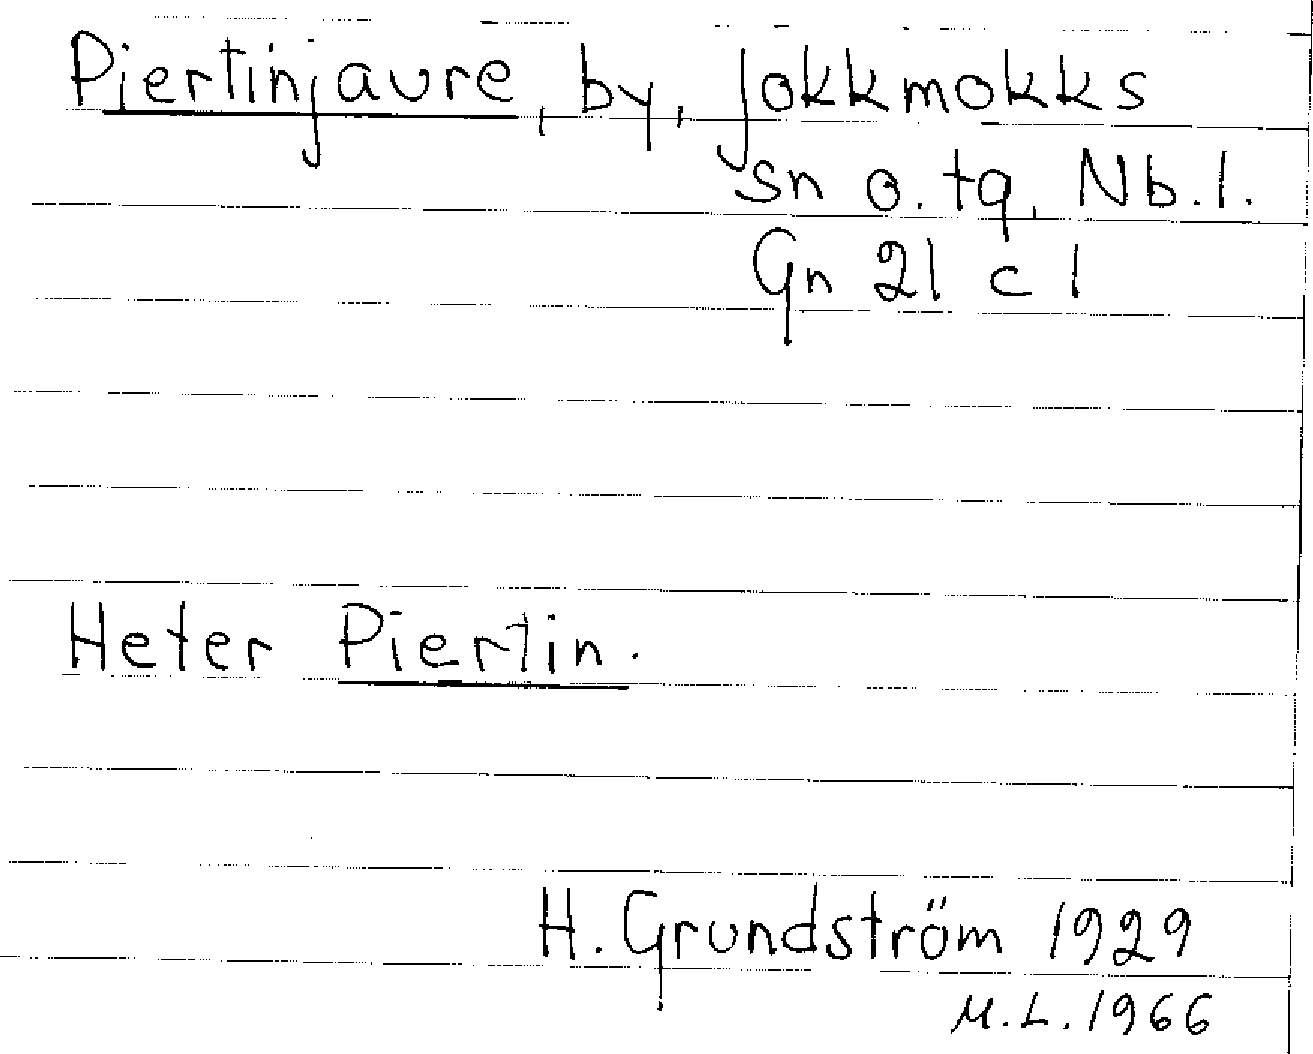 Piertinjaure, by, Jokkmokks
sn o. tg, Nb.l.
Gn 21 c 1
Heter Piertin.
H. Grundström 1929
M.L. 1966